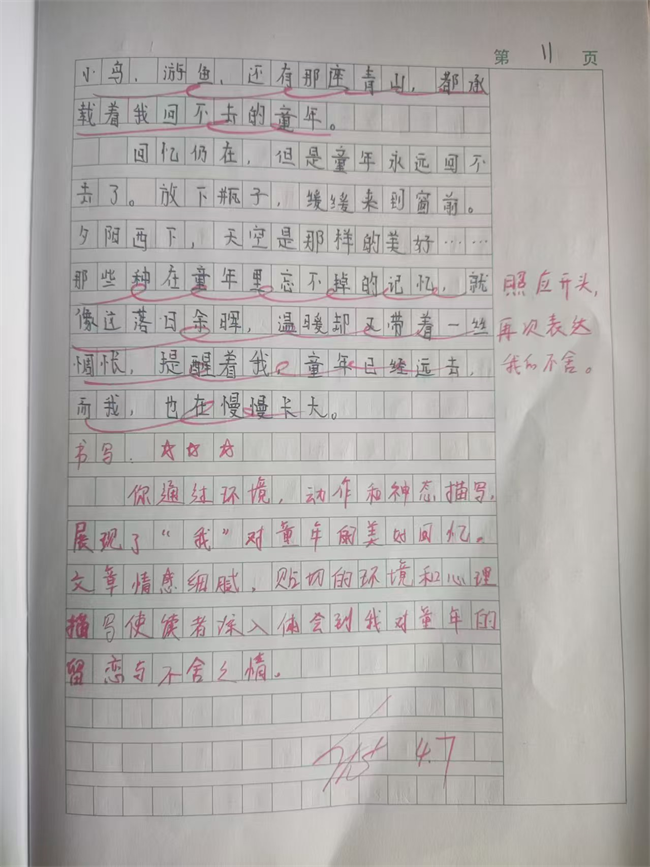 第 11 页
小鸟、游鱼、还有那座青山，都承
载着我回不去的童年。
回忆仍在，但是童年永远回不
去了。放下瓶子，缓缓来到窗前。
夕阳西下，天空是那样的美好……
那些种在童年里忘不掉的记忆，就
像这落日余晖，温暖却又带着一丝
惆怅，提醒着我，童年已经远去，
而我，也在慢慢长大。
照应开头，
再次表达
我的不舍。
书写：☆☆☆
你通过环境，动作和神态描写，
展现了“我”对童年的美好回忆。
文章情感细腻，贴切的环境和心理
描写使读者深入体会到我对童年的
留恋与不舍之情。
4.7